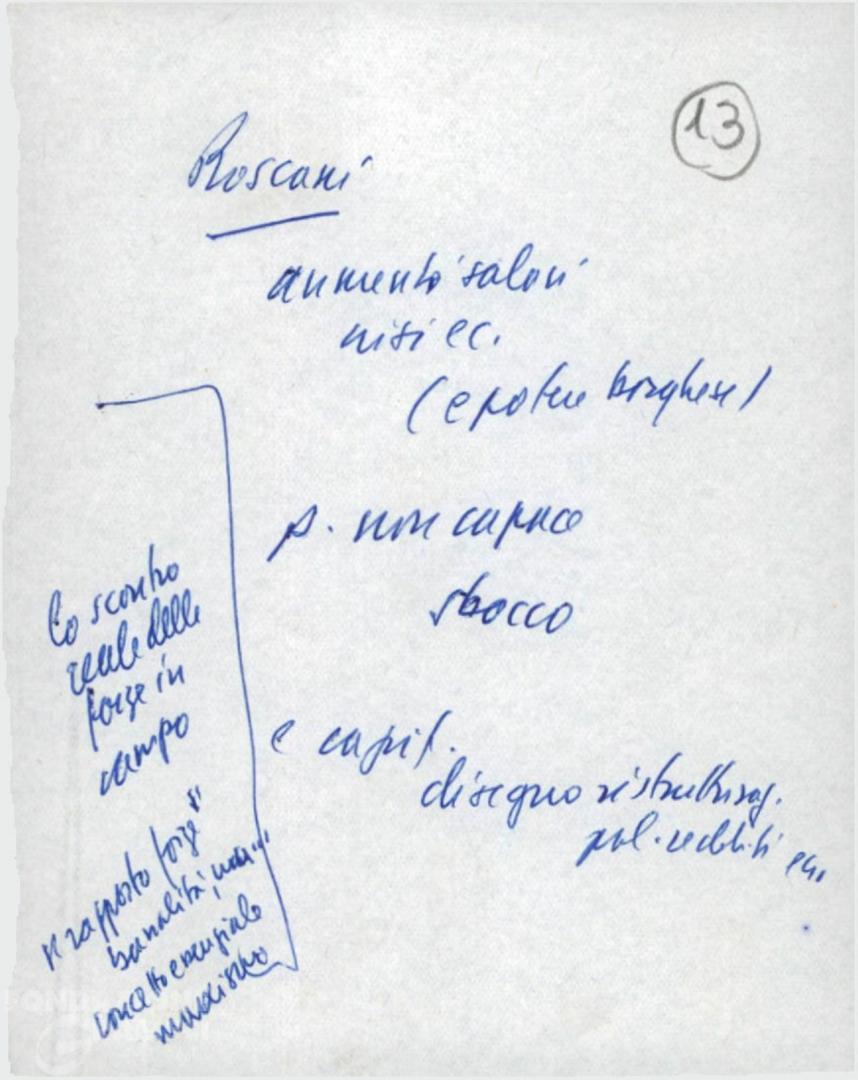 13
Roscani
aumento salari
crisi ec.
(e potere borghese)
p. non capace
sbocco
e capit.
disegno ristrutturaz.
pol. redditi ecc.
Lo scontro
reale delle
forze in
campo
"rapporto forze"
banalità, non
concetto essenziale
marxismo